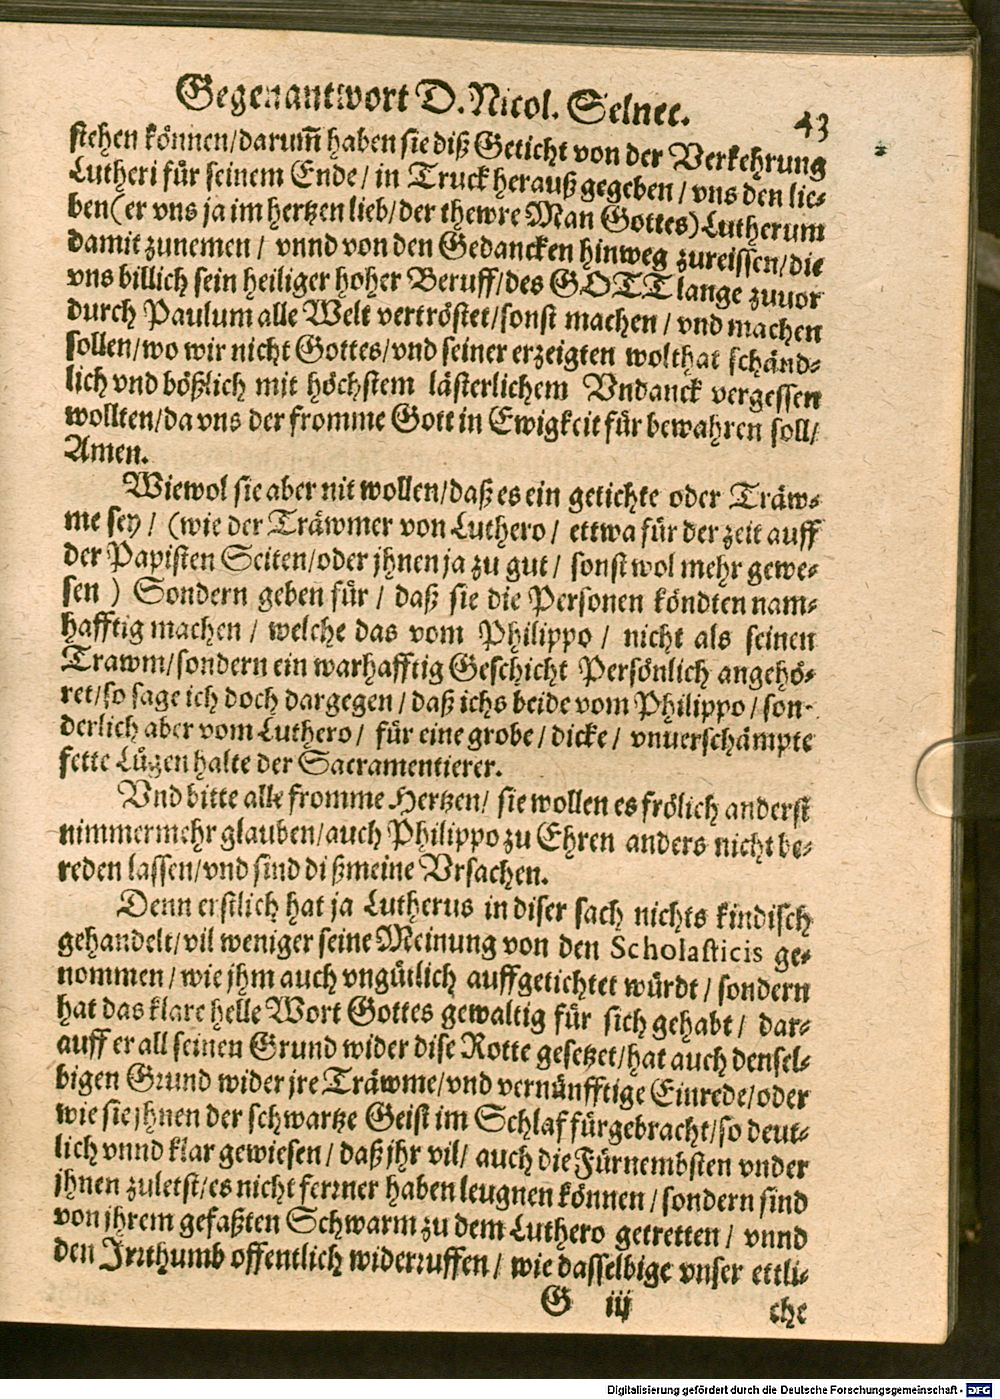 Gegenantwort D. Nicol. Selnec.
43
stehen können/darum̃ haben sie diß Geticht von der Verkehrung
Lutheri für seinem Ende/ in Truck herauß gegeben/ vns den lie-
ben (er vns ja im hertzen lieb/der thewre Man Gottes) Lutherum
damit zunemen/ vnnd von den Gedancken hinweg zureissen/die
vns billich sein heiliger hoher Beruff/des GOTT lange zuuor
durch Paulum alle Welt vertröstet/sonst machen/ vnd machen
sollen/wo wir nicht Gottes/vnd seiner erzeigten wolthat schänd-
lich vnd bößlich mit höchstem lästerlichem Vndanck vergessen
wollten/da vns der fromme Gott in Ewigkeit für bewahren soll/
Amen.
Wiewol sie aber nit wollen/daß es ein getichte oder Träw-
me sey/ (wie der Träwmer von Luthero/ ettwa für der zeit auff
der Papisten Seiten/oder jhnen ja zu gut/ sonst wol mehr gewe-
sen) Sondern geben für/ daß sie die Personen köndten nam-
hafftig machen/ welche das vom Philippo/ nicht als seinen
Trawm/sondern ein warhafftig Geschicht Persönlich angehö-
ret/so sage ich doch dargegen/ daß ichs beide vom Philippo/ son-
derlich aber vom Luthero/ für eine grobe/ dicke/ vnuerschämpte
fette Lügen halte der Sacramentierer.
Vnd bitte alle fromme Hertzen/ sie wollen es frölich anderst
nimmermehr glauben/auch Philippo zu Ehren anders nicht be-
reden lassen/vnd sind diß meine Vrsachen.
Denn erstlich hat ja Lutherus in diser sach nichts kindisch
gehandelt/vil weniger seine Meinung von den Scholasticis ge-
nommen/ wie jhm auch vngütlich auffgetichtet würdt/ sondern
hat das klare helle Wort Gottes gewaltig für sich gehabt/ dar-
auff er all seinen Grund wider dise Rotte gesetzet/hat auch densel-
bigen Grund wider jre Träwme/vnd vernünfftige Einrede/oder
wie sie jhnen der schwartze Geist im Schlaf fürgebracht/so deut-
lich vnnd klar gewiesen/ daß jhr vil/ auch die Fürnembsten vnder
jhnen zuletst/es nicht ferrner haben leugnen können/ sondern sind
von jhrem gefaßten Schwarm zu dem Luthero getretten/ vnnd
den Jrrthumb offentlich widerruffen/ wie dasselbige vnser ettli-
G iij
che
Digitalisierung gefördert durch die Deutsche Forschungsgemeinschaft - DFG